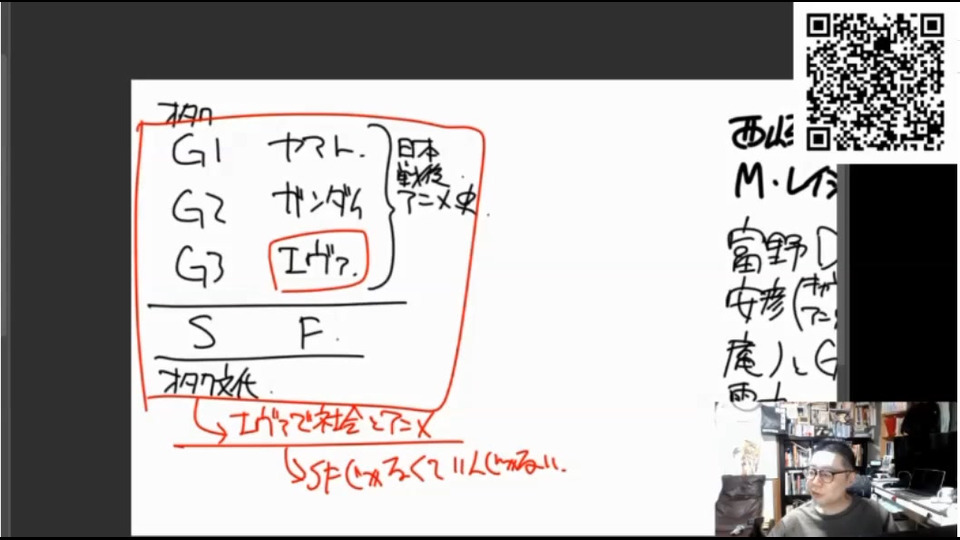 オタク
G1 ヤマト.
G2 ガンダム
G3 エヴァ.
日本
戦後
アニメ史.
S F.
オタク文化.
エヴァで社会とアニメ
SFじゃなくていいんじゃない.
西
M・レイ
富野D
安彦(
アニ
庵ノとG